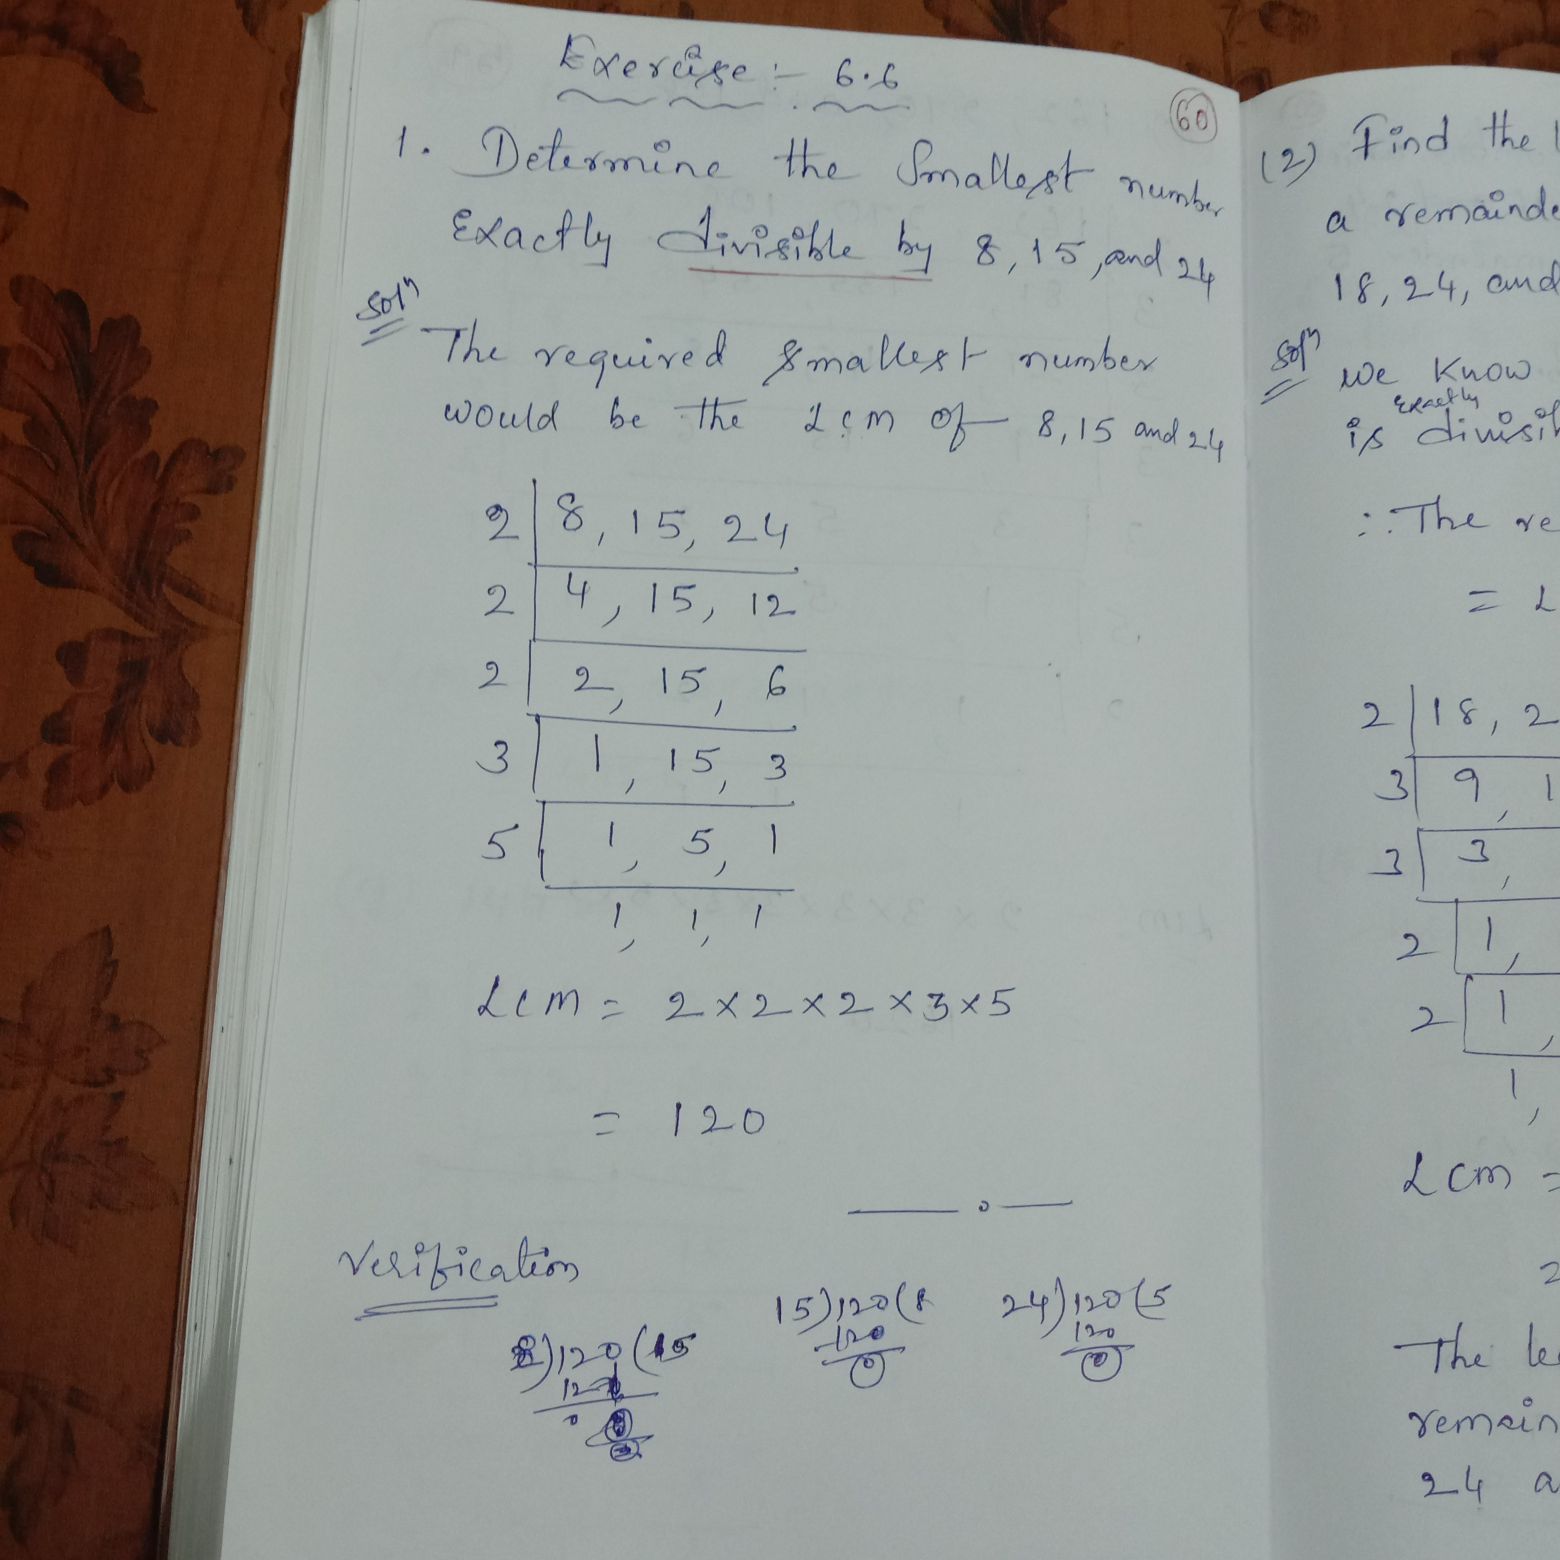 Exercise :- 6.6
60
1. Determine the Smallest number
Exactly divisible by 8, 15, and 24
Soln
The required smallest number
would be the LCM of 8, 15 and 24
2 | 8, 15, 24
2 | 4, 15, 12
2 | 2, 15, 6
3 | 1, 15, 3
5 | 1, 5, 1
1, 1, 1
LCM = 2 × 2 × 2 × 3 × 5
= 120
Verification
8)120(15
0
15)120(8
120
0
24)120(5
120
0
(2) Find the
a remainde
18, 24, and
Soln
We Know
exactly
is divisib
∴ The re
= L
2 | 18, 2
3 | 9, 1
3 | 3,
2 | 1,
2 | 1,
1,
LCM =
2
The le
remain
24 a